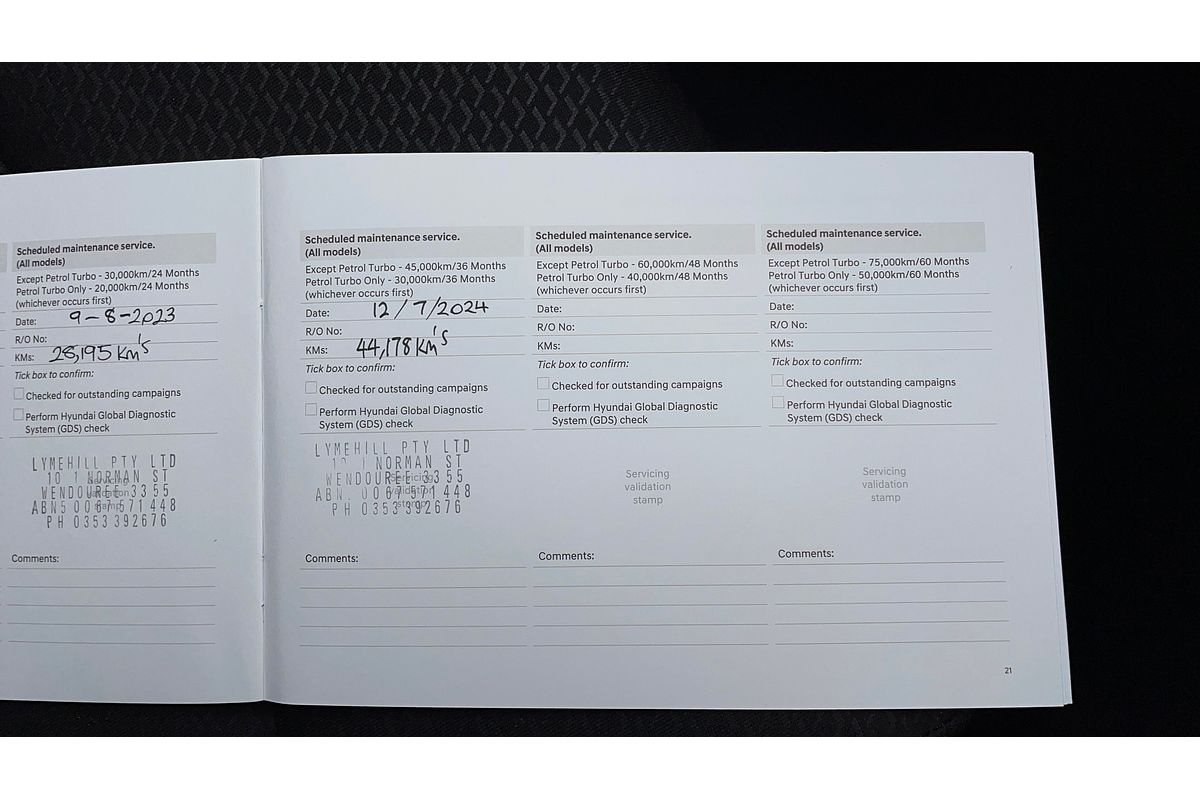 Scheduled maintenance service.
(All models)
Except Petrol Turbo - 30,000km/24 Months
Petrol Turbo Only - 20,000km/24 Months
(whichever occurs first)
Date: 9-8-2023
R/O No:
KMs: 28,195 Km's
Tick box to confirm:
Checked for outstanding campaigns
Perform Hyundai Global Diagnostic
System (GDS) check
LYMEHILL PTY LTD
NORMAN ST
WENDOUREE 3355
PH 0353 392676
Comments:
Scheduled maintenance service.
(All models)
Except Petrol Turbo - 45,000km/36 Months
Petrol Turbo Only - 30,000km/36 Months
(whichever occurs first)
Date: 12/7/2024
R/O No:
KMs: 44,178 Km's
Tick box to confirm:
Checked for outstanding campaigns
Perform Hyundai Global Diagnostic
System (GDS) check
LYMEHILL PTY LTD
NORMAN ST
WENDOUREE 3355
PH 0353 392676
Comments:
Scheduled maintenance service.
(All models)
Except Petrol Turbo - 60,000km/48 Months
Petrol Turbo Only - 40,000km/48 Months
(whichever occurs first)
Date:
R/O No:
KMs:
Tick box to confirm:
Checked for outstanding campaigns
Perform Hyundai Global Diagnostic
System (GDS) check
Servicing
validation
stamp
Comments:
Scheduled maintenance service.
(All models)
Except Petrol Turbo - 75,000km/60 Months
Petrol Turbo Only - 50,000km/60 Months
(whichever occurs first)
Date:
R/O No:
KMs:
Tick box to confirm:
Checked for outstanding campaigns
Perform Hyundai Global Diagnostic
System (GDS) check
Servicing
validation
stamp
Comments:
21